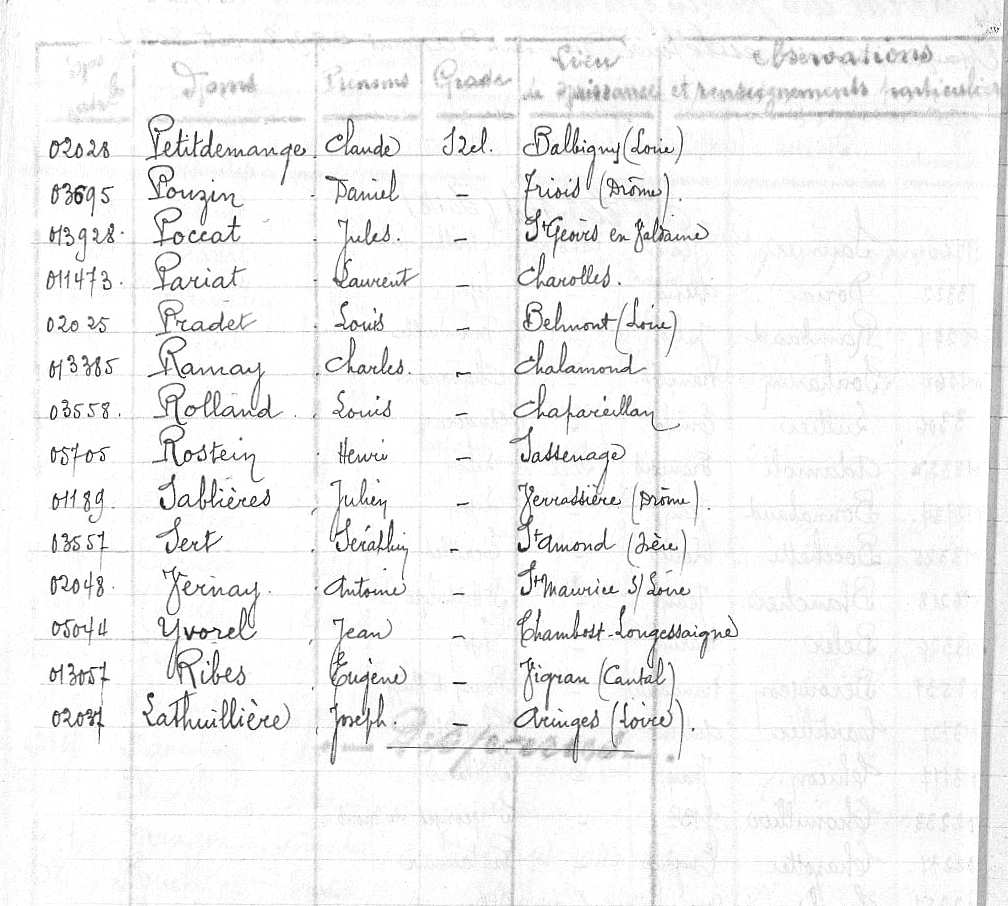 Noms Prénoms Grade Lieu de Naissance Observations et renseignements particuliers
02028 Petitdemange Claude S2cl. Balbigny (Loire)
03695 Pouzin Daniel — Triois (Drôme).
013928. Poccat Jules. — St Geoirs en Valdaine
011473. Pariat Laurent — Charolles.
02025 Pradet Louis — Belmont (Loire)
013385 Ramay Charles. — Chalamond
03558. Rolland Louis — Chapareillan
05705 Rostein Henri — Sassenage
01189. Sablières Julien — Ferrassière (Drôme).
03557 Sert Séraphin — St Amond (Isère)
02048. Vernay. Antoine — St Maurice S/ Loire
05044 Yvorel Jean — Chambost-Longessaigne
013057 Ribes Eugène — Vigean (Cantal)
02037 Lathuillière Joseph. — Aringes (Loire).